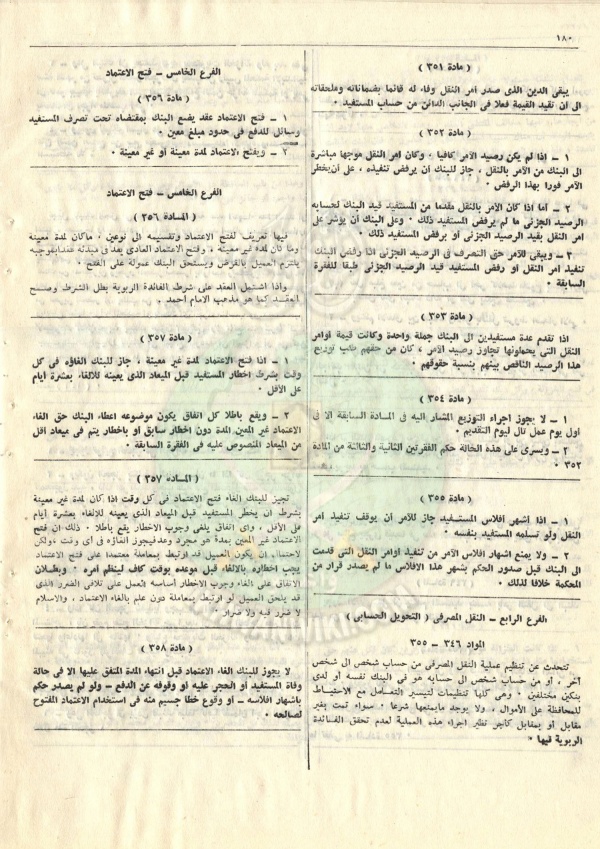 ١٨٠
( مادة ٣٥١ )
يبقى الدين الذى صدر أمر النقل وفاء له قائما بضماناته وملحقاته
الى ان تقيد القيمة فعلا فى الجانب الدائن من حساب المستفيد .
( مادة ٣٥٢ )
١ – اذا لم يكن رصيد الآمر كافيا ، وكان أمر النقل موجها مباشرة
الى البنك من الآمر بالنقل ، جاز للبنك أن يرفض تنفيذه ، على أن يخطر
الآمر فورا بهذا الرفض .
٢ – أما اذا كان الأمر بالنقل مقدما من المستفيد قيد البنك لحسابه
الرصيد الجزئى ما لم يرفض المستفيد ذلك . وعلى البنك أن يؤشر على
أمر النقل بقيد الرصيد الجزئى أو برفض المستفيد ذلك .
٣ – ويبقى للآمر حق التصرف فى الرصيد الجزئى اذا رفض البنك
تنفيذ أمر النقل أو رفض المستفيد قيد الرصيد الجزئى طبقا للفقرة
السابقة .
( مادة ٣٥٣ )
اذا تقدم عدة مستفيدين الى البنك جملة واحدة وكانت قيمة أوامر
النقل التى يحملونها تجاوز رصيد الآمر ، كان من حقهم طلب توزيع
هذا الرصيد الناقص بينهم بنسبة حقوقهم .
( مادة ٣٥٤ )
١ – لا يجوز اجراء التوزيع المشار اليه فى المادة السابقة الا فى
أول يوم عمل تال ليوم التقديم .
٢ – ويسرى على هذه الحالة حكم الفقرتين الثانية والثالثة من المادة
٣٥٢ .
( مادة ٣٥٥ )
١ – اذا أشهر افلاس المستفيد جاز للآمر أن يوقف تنفيذ أمر
النقل ولو تسلمه المستفيد بنفسه .
٢ – ولا يمنع اشهار افلاس الآمر من تنفيذ أوامر النقل التى قدمت
الى البنك قبل صدور الحكم بشهر هذا الافلاس ما لم يصدر قرار من
المحكمة خلافا لذلك .
الفرع الرابع – النقل المصرفى ( التحويل الحسابى )
المواد ٣٤٦ – ٣٥٥
تتحدث عن تنظيم عملية النقل المصرفى من حساب شخص الى شخص
آخر ، أو من حساب شخص الى حسابه هو فى البنك نفسه أو لدى
بنكين مختلفين . وهى كلها تنظيمات لتيسير التعامل مع الاحتياط
للمحافظة على الأموال ، ولا يوجد مايمنعها شرعا . سواء تمت بغير
مقابل أو بمقابل كأجر نظير اجراء هذه العملية لعدم تحقق الفائدة
الربوية فيها .
الفرع الخامس – فتح الاعتماد
( مادة ٣٥٦ )
١ – فتح الاعتماد عقد يضع البنك بمقتضاه تحت تصرف المستفيد
وسائل للدفع فى حدود مبلغ معين .
٢ – ويفتح الاعتماد لمدة معينة أو غير معينة .
الفرع الخامس – فتح الاعتماد
( المادة ٣٥٦ )
فيها تعريف لفتح الاعتماد وتقسيمه الى نوعين . ماكان لمدة معينة
وما كان لمدة غير معينة ، وفتح الاعتماد العادى يعد فى مبدئه عقدا بموجبه
يلتزم العميل بالقرض ويستحق البنك عمولة على الفتح .
واذا اشتمل العقد على شرط الفائدة الربوية بطل الشرط وصح
العقد كما هو مذهب الامام أحمد .
( مادة ٣٥٧ )
١ – اذا فتح الاعتماد لمدة غير معينة ، جاز للبنك الغاؤه فى كل
وقت بشرط اخطار المستفيد قبل الميعاد الذى يعينه للالغاء بعشرة أيام
على الأقل .
٢ – ويقع باطلا كل اتفاق يكون موضوعه اعطاء البنك حق الغاء
الاعتماد غير المعين المدة دون اخطار سابق أو باخطار يتم فى ميعاد أقل
من الميعاد المنصوص عليه فى الفقرة السابقة .
( المادة ٣٥٧ )
تجيز للبنك الغاء فتح الاعتماد فى كل وقت اذا كان لمدة غير معينة
بشرط أن يخطر المستفيد قبل الميعاد الذى يعينه للالغاء بعشرة أيام
على الأقل ، وأى اتفاق يلغى وجوب الاخطار يقع باطلا . ذلك أن فتح
الاعتماد غير المعين بمدة هو مجرد وعد فيجوز الغاؤه فى أى وقت ، ولكن
لاحتمال أن يكون العميل قد ارتبط بمعاملة معتمدا على فتح الاعتماد
يجب اخطاره بالالغاء قبل موعده بوقت كاف لينظم أمره . وبطلان
الاتفاق على الغاء وجوب الاخطار أساسه العمل على تلافى الضرر الذى
قد يلحق العميل لو ارتبط بمعاملة دون علم بالغاء الاعتماد ، والاسلام
لا ضرر فيه ولا ضرار .
( مادة ٣٥٨ )
لا يجوز للبنك الغاء الاعتماد قبل انتهاء المدة المتفق عليها الا فى حالة
وفاة المستفيد أو الحجر عليه أو وقوفه عن الدفع – ولو لم يصدر حكم
باشهار افلاسه – أو وقوع خطأ جسيم منه فى استخدام الاعتماد المفتوح
لصالحه .